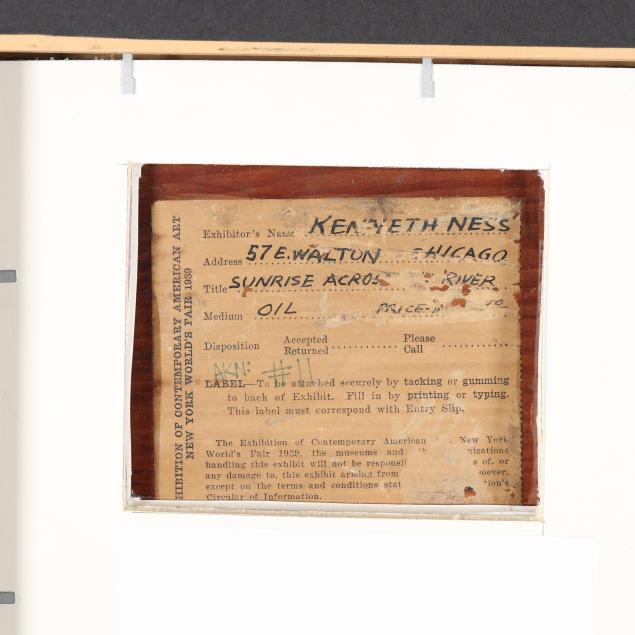 HIBITION OF CONTEMPORARY AMERICAN ART
NEW YORK WORLD'S FAIR 1939
Exhibitor's Name KENNETH NESS
Address 57 E. WALTON CHICAGO
Title SUNRISE ACROS RIVER
Medium OIL PRICE-
Disposition Accepted Returned Please Call
AKN: #11
LABEL—To be attached securely by tacking or gumming
to back of Exhibit. Fill in by printing or typing.
This label must correspond with Entry Slip.
The Exhibition of Contemporary American New York
World's Fair 1939, the museums and nizations
handling this exhibit will not be responsi s of, or
any damage to, this exhibit arising from soever,
except on the terms and conditions stat tion's
Circular of Information.